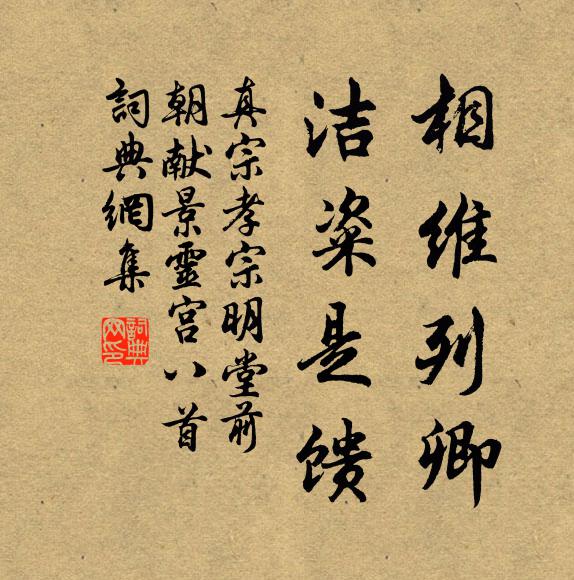 相维列卿
洁粢是馈
真宗孝宗明堂前
朝献景靈宫八首
詞典網集
詞典
网印